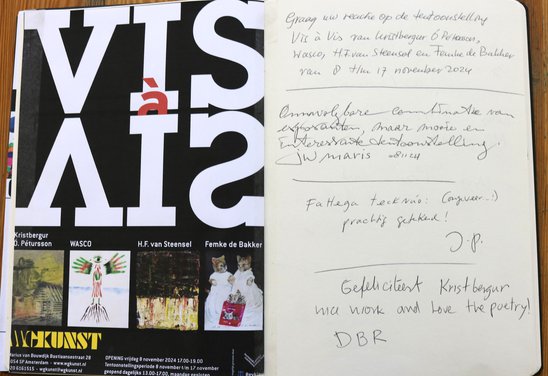 VIS
à
VIS
Kristbergur
Ó. Pétursson
WASCO
H.F. van Steensel
Femke de Bakker
WGKUNST
Marius van Bouwdijk Bastiaansestraat 28
1054 SP Amsterdam - www.wgkunst.nl
020 6161515 - wgkunst@wgkunst.nl
OPENING vrijdag 8 november 2024 17.00-19.00
Tentoonstellingsperiode 8 november t/m 17 november
geopend dagelijks 13.00-17.00, maandag gesloten
Graag uw reactie op de tentoonstelling
Vis à Vis van Kristbergur Ó Pétursson,
Wasco, H.F. van Steensel en Femke de Bakker
van 8 t/m 17 november 2024
combinatie van
exposanten, maar mooie en
interessante tentoonstelling.
jw maris 8 11 24
Fallega teiknað:
prachtig getekend!
J.P.
Gefeliciteert Kristbergur
nice work and love the poetry!
DBR